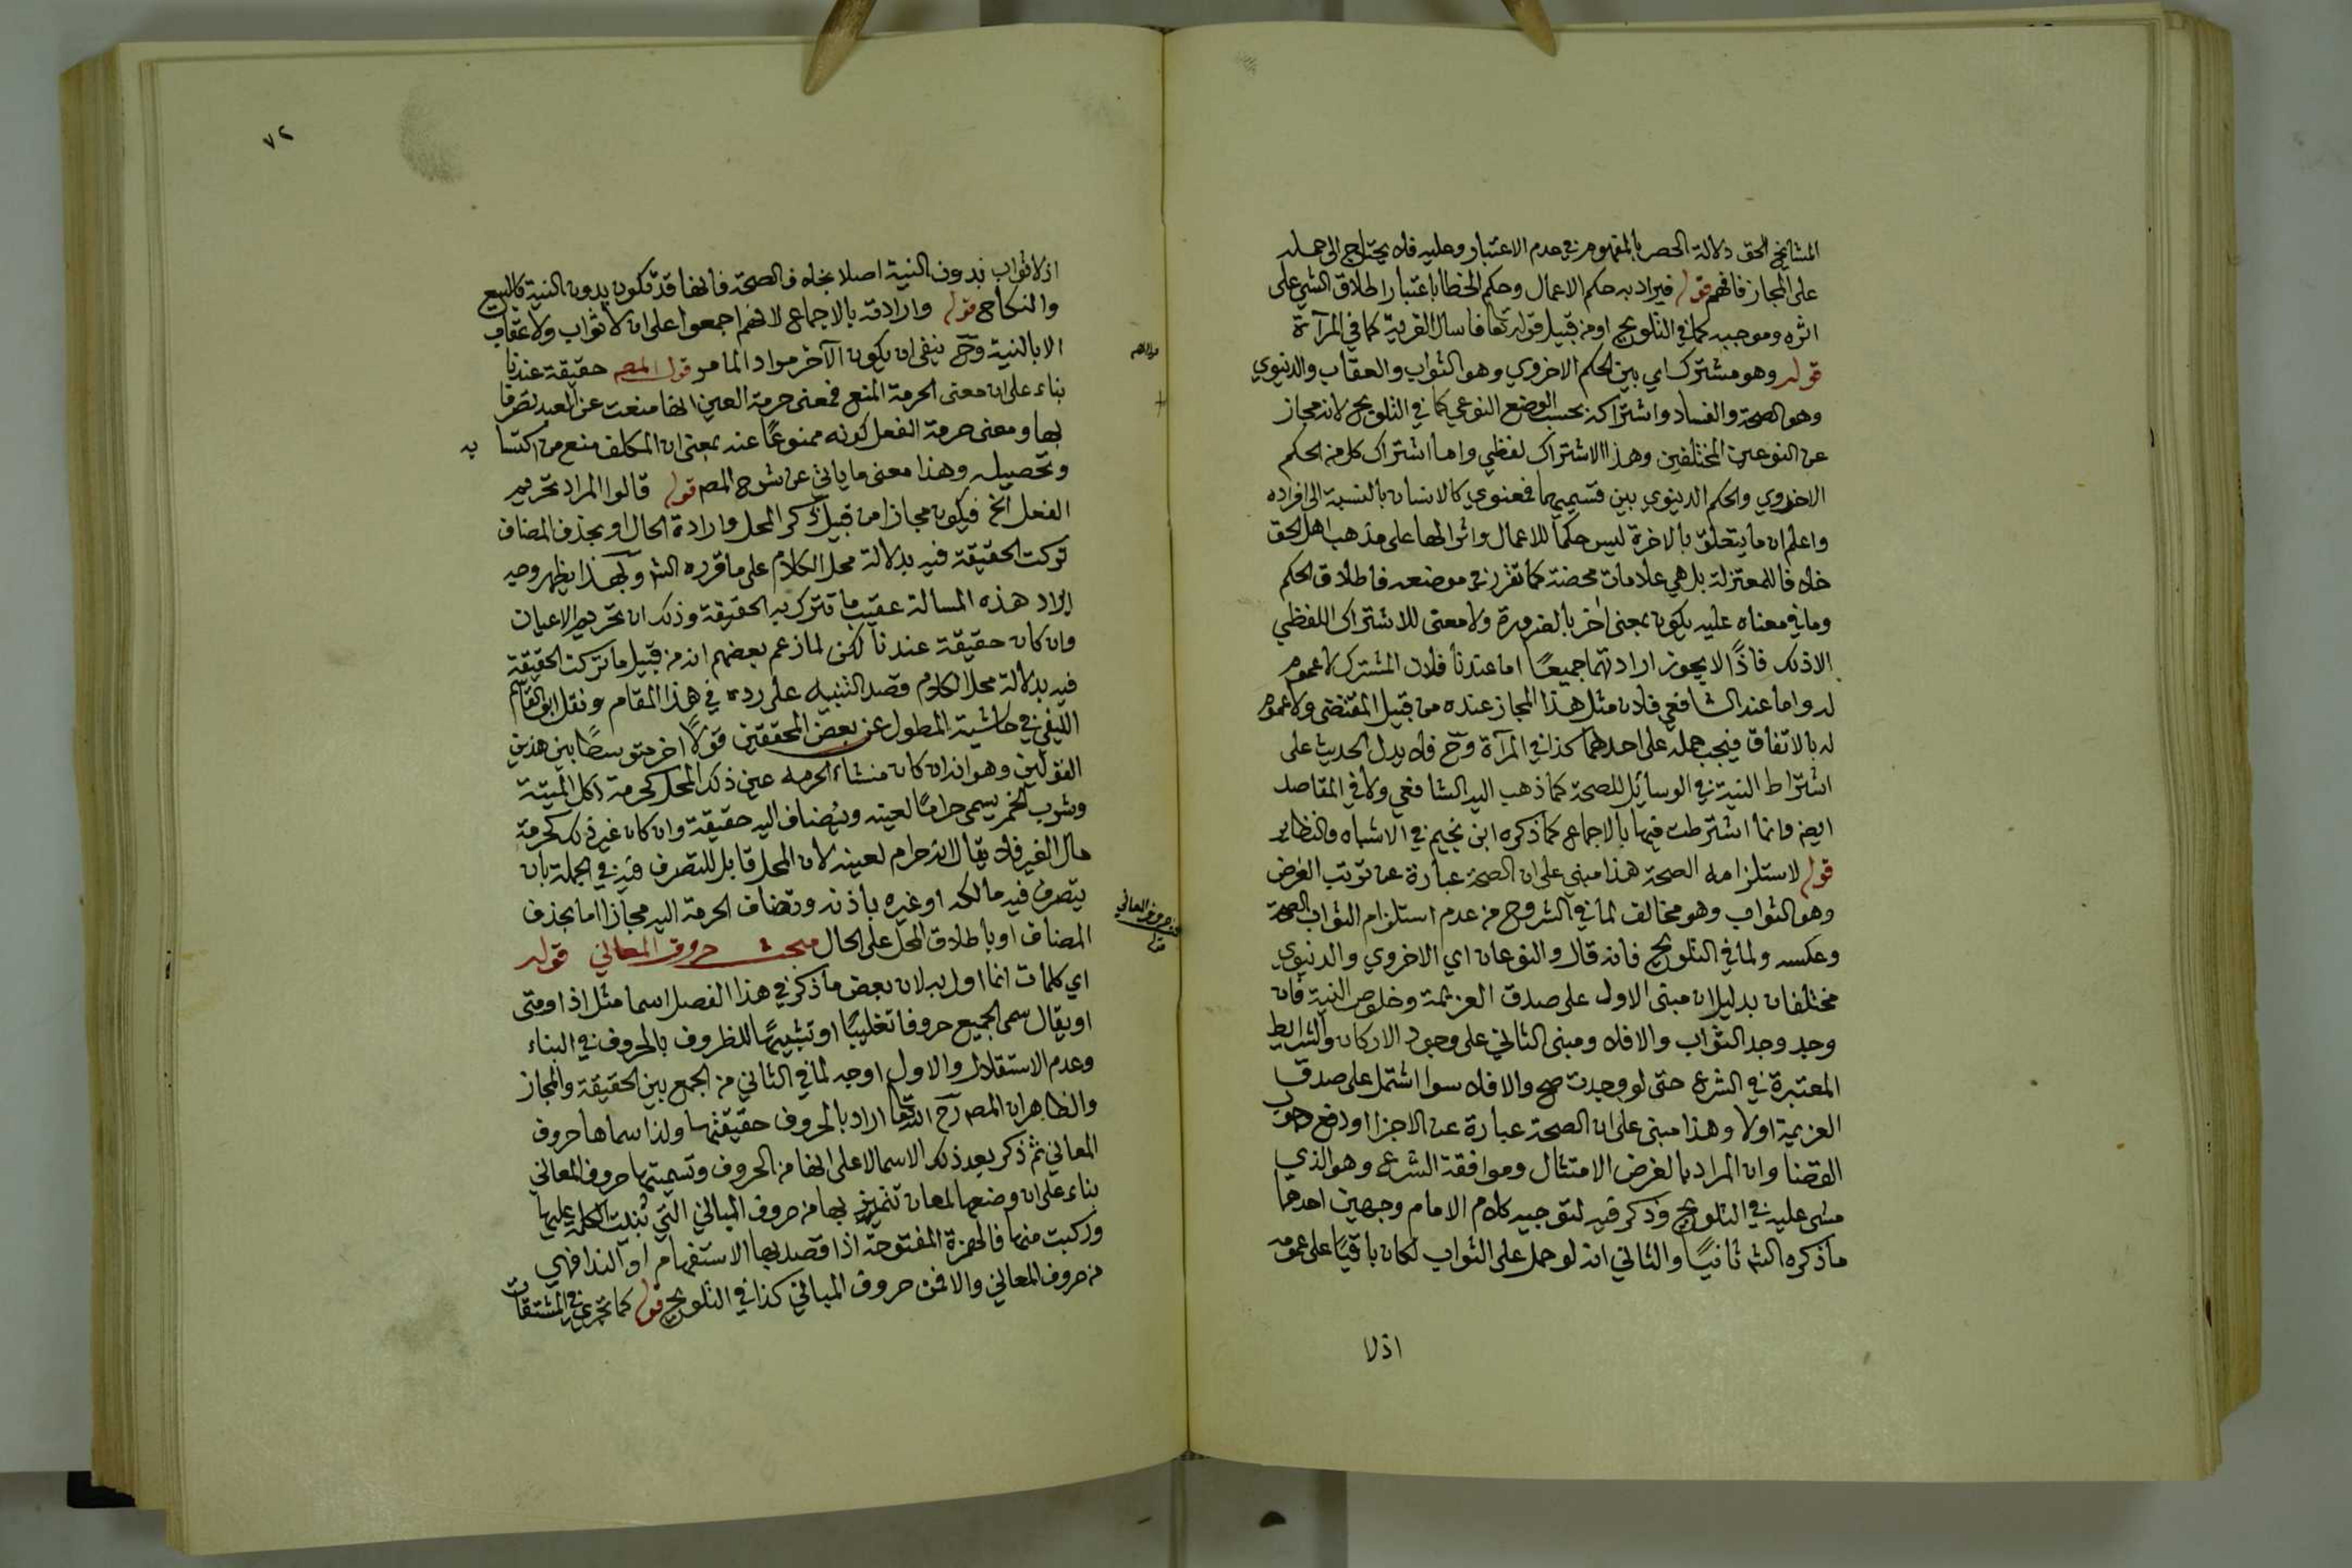 المشايخ الحق دلالة الحصر بالمفهوم في عدم الاعتبار وعليه فلا يحتاج الى حمله
على المجاز فافهم قوله فيراد به حكم الاعمال وحكم الخطا باعتبار اطلاق الشي على
اثره وموجبه كما في التلويح او من قبيل قوله تعا فاسال القرية كما في المرآة
قوله وهو مشترك اي بين الحكم الاخروي وهو الثواب والعقاب والدنيوي
وهو الصحة والفساد واشتراكه بحسب الوضع النوعي كما في التلويح لانه مجاز
عن النوعين المختلفين وهذا الاشتراك لفظي واما اشتراك كل من الحكم
الاخروي والحكم الدنيوي بين قسيميهما فمعنوي كالانسان بالنسبة الى افراده
واعلم ان ما يتعلق بالاخرة ليس حكما للاعمال واثرا لها على مذهب اهل الحق
خلافا للمعتزلة بل هي علامات محضة كما تقرر في موضعه فاطلاق الحكم
وما في معناه عليه يكون بمعنى اخر بالضرورة ولا معنى للاشتراك اللفظي
الا ذلك فاذًا لا يجوز ارادتهما جميعًا اما عندنا فلان المشترك لا عموم
له واما عند الشافعي فلان مثل هذا المجاز عنده من قبيل المقتضى ولا عموم
له بالاتفاق فيجب حمله على احدهما كذا في المرآة وح فلا يدل الحديث على
اشتراط النية في الوسائل للصحة كما ذهب اليه الشافعي ولا في المقاصد
ايضا وانما اشترطت فيها بالاجماع كما ذكره ابن نجيم في الاشباه والنظاير
قوله لاستلزامه الصحة هذا مبني على ان الصحة عبارة عن ترتب الغرض
وهو الثواب وهو مخالف لما في الشروح من عدم استلزام الثواب الصحة
وعكسه ولما في التلويح فانه قال والنوعان اي الاخروي والدنيوي
مختلفان بدليل ان مبنى الاول على صدق العزيمة وخلوص النية فان
وجد وجد الثواب والا فلا ومبنى الثاني على وجود الاركان والشرايط
المعتبرة في الشرع حتى لو وجدت صح والا فلا سوا اشتمل على صدق
العزيمة اولا وهذا مبنى على ان الصحة عبارة عن الاجزا او دفع وجوب
القضا وان المراد بالغرض الامتثال وموافقة الشرع وهو الذي
مشى عليه في التلويح وذكر فيه لتوجيه كلام الامام وجهين احدهما
ما ذكره الشه ثانيًا والثاني انه لو حمل على الثواب لكان باقيًا على عمومه
اذ لا
٧٢
اذ لا ثواب بدون النية اصلا بخلاف الصحة فانها قد تكون بدون النية كالبيع
والنكاح قوله وارادته بالاجماع لانهم اجمعوا على ان لا ثواب ولا عقاب
الا بالنية وح ينفى ان يكون الآخر مرادا لما مر قول المصه حقيقة عندنا
بناء على ان معنى الحرمة المنع فمعنى حرمة العين انها منعت عن العبد تصرفا
بها ومعنى حرمة الفعل كونه ممنوعًا عنه بمعنى ان المكلف منع من اكتسابه
وتحصيله وهذا معنى ما ياتي عن شرح المصه قوله قالوا المراد تحريم
الفعل الخ فيكون مجازا من قبيل ذكر المحل وارادة الحال او بحذف المضاف
تركت الحقيقة فيه بدلالة محل الكلام على ما قرره الشه وبهذا يظهر وجه
ايراد هذه المسالة عقيب ما تترك به الحقيقة وذلك ان تحريم الاعيان
وان كان حقيقة عندنا لكن لما زعم بعضهم انه من قبيل ما تركت الحقيقة
فيه بدلالة محل الكلام قصد التنبيه على رده في هذا المقام ونقل ابو القاسم
الليثي في حاشية المطول عن بعض المحققين قولًا اخر متوسطًا بين هذين
القولين وهو انه ان كان منشاء الحرمه عين ذلك المحل كحرمة اكل الميتة
وشرب الخمر يسمى حرامًا لعينه ويضاف اليه حقيقة وان كان غير ذلك كحرمة
مال الغير فلا يقال انه حرام لعينه لان المحل قابل للتصرف فيه في الجملة بان
يتصرف فيه مالكه او غيره باذنه وتضاف الحرمة اليه مجازا اما بحذف
المضاف او باطلاق المحل على الحال مبحث حروف المعاني قوله
اي كلمات انما اول به لان بعض ما ذكر في هذا الفصل اسما مثل اذا ومتى
او يقال سمى الجميع حروفا تغليبًا او تشبيهًا للظروف بالحروف في البناء
وعدم الاستقلال والاول اوجه لما في الثاني من الجمع بين الحقيقة والمجاز
والظاهر ان المصه رح الله تعا اراد بالحروف حقيقتها ولذا سماها حروف
المعاني ثم ذكر بعد ذلك الاسما لا على انها من الحروف وتسميتها حروف المعاني
بناء على ان وضعها لمعان تتميز بها من حروف المباني التي بنيت الكلمة عليها
وركبت منها فالهمزة المفتوحة اذا قصد بها الاستفهام او الندا فهي
من حروف المعاني والا فمن حروف المباني كذا في التلويح قوله كما تجري في المشتقات
حروف المعاني